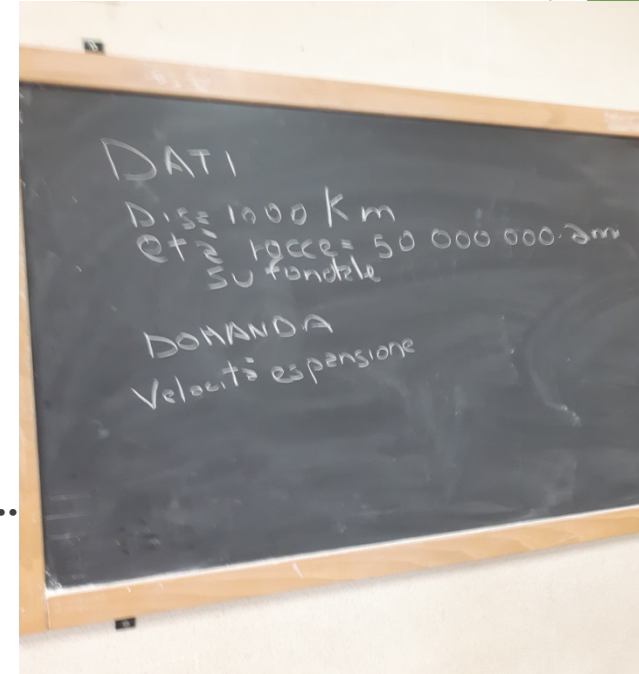 DATI
Dis= 1000 Km
età rocce= 50 000 000 anni
su fondale
DOMANDA
Velocità espansione